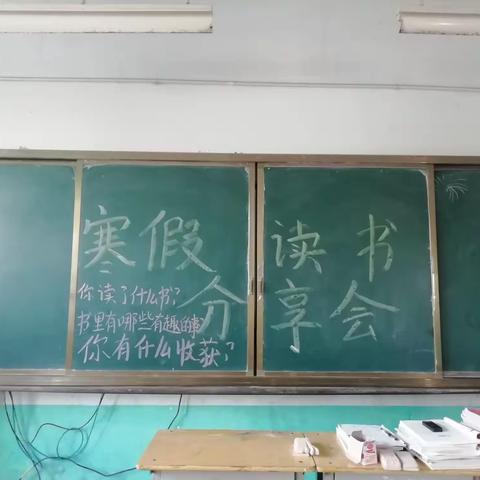 寒假读书
分享会
你读了什么书?
书里有哪些有趣的事?
你有什么收获?